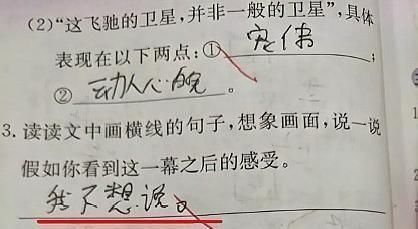 (2)“这飞驰的卫星，并非一般的卫星”，具体
表现在以下两点：①宏伟；
②动人心魄。
3. 读读文中画横线的句子，想象画面，说一说
假如你看到这一幕之后的感受。
我不想说。